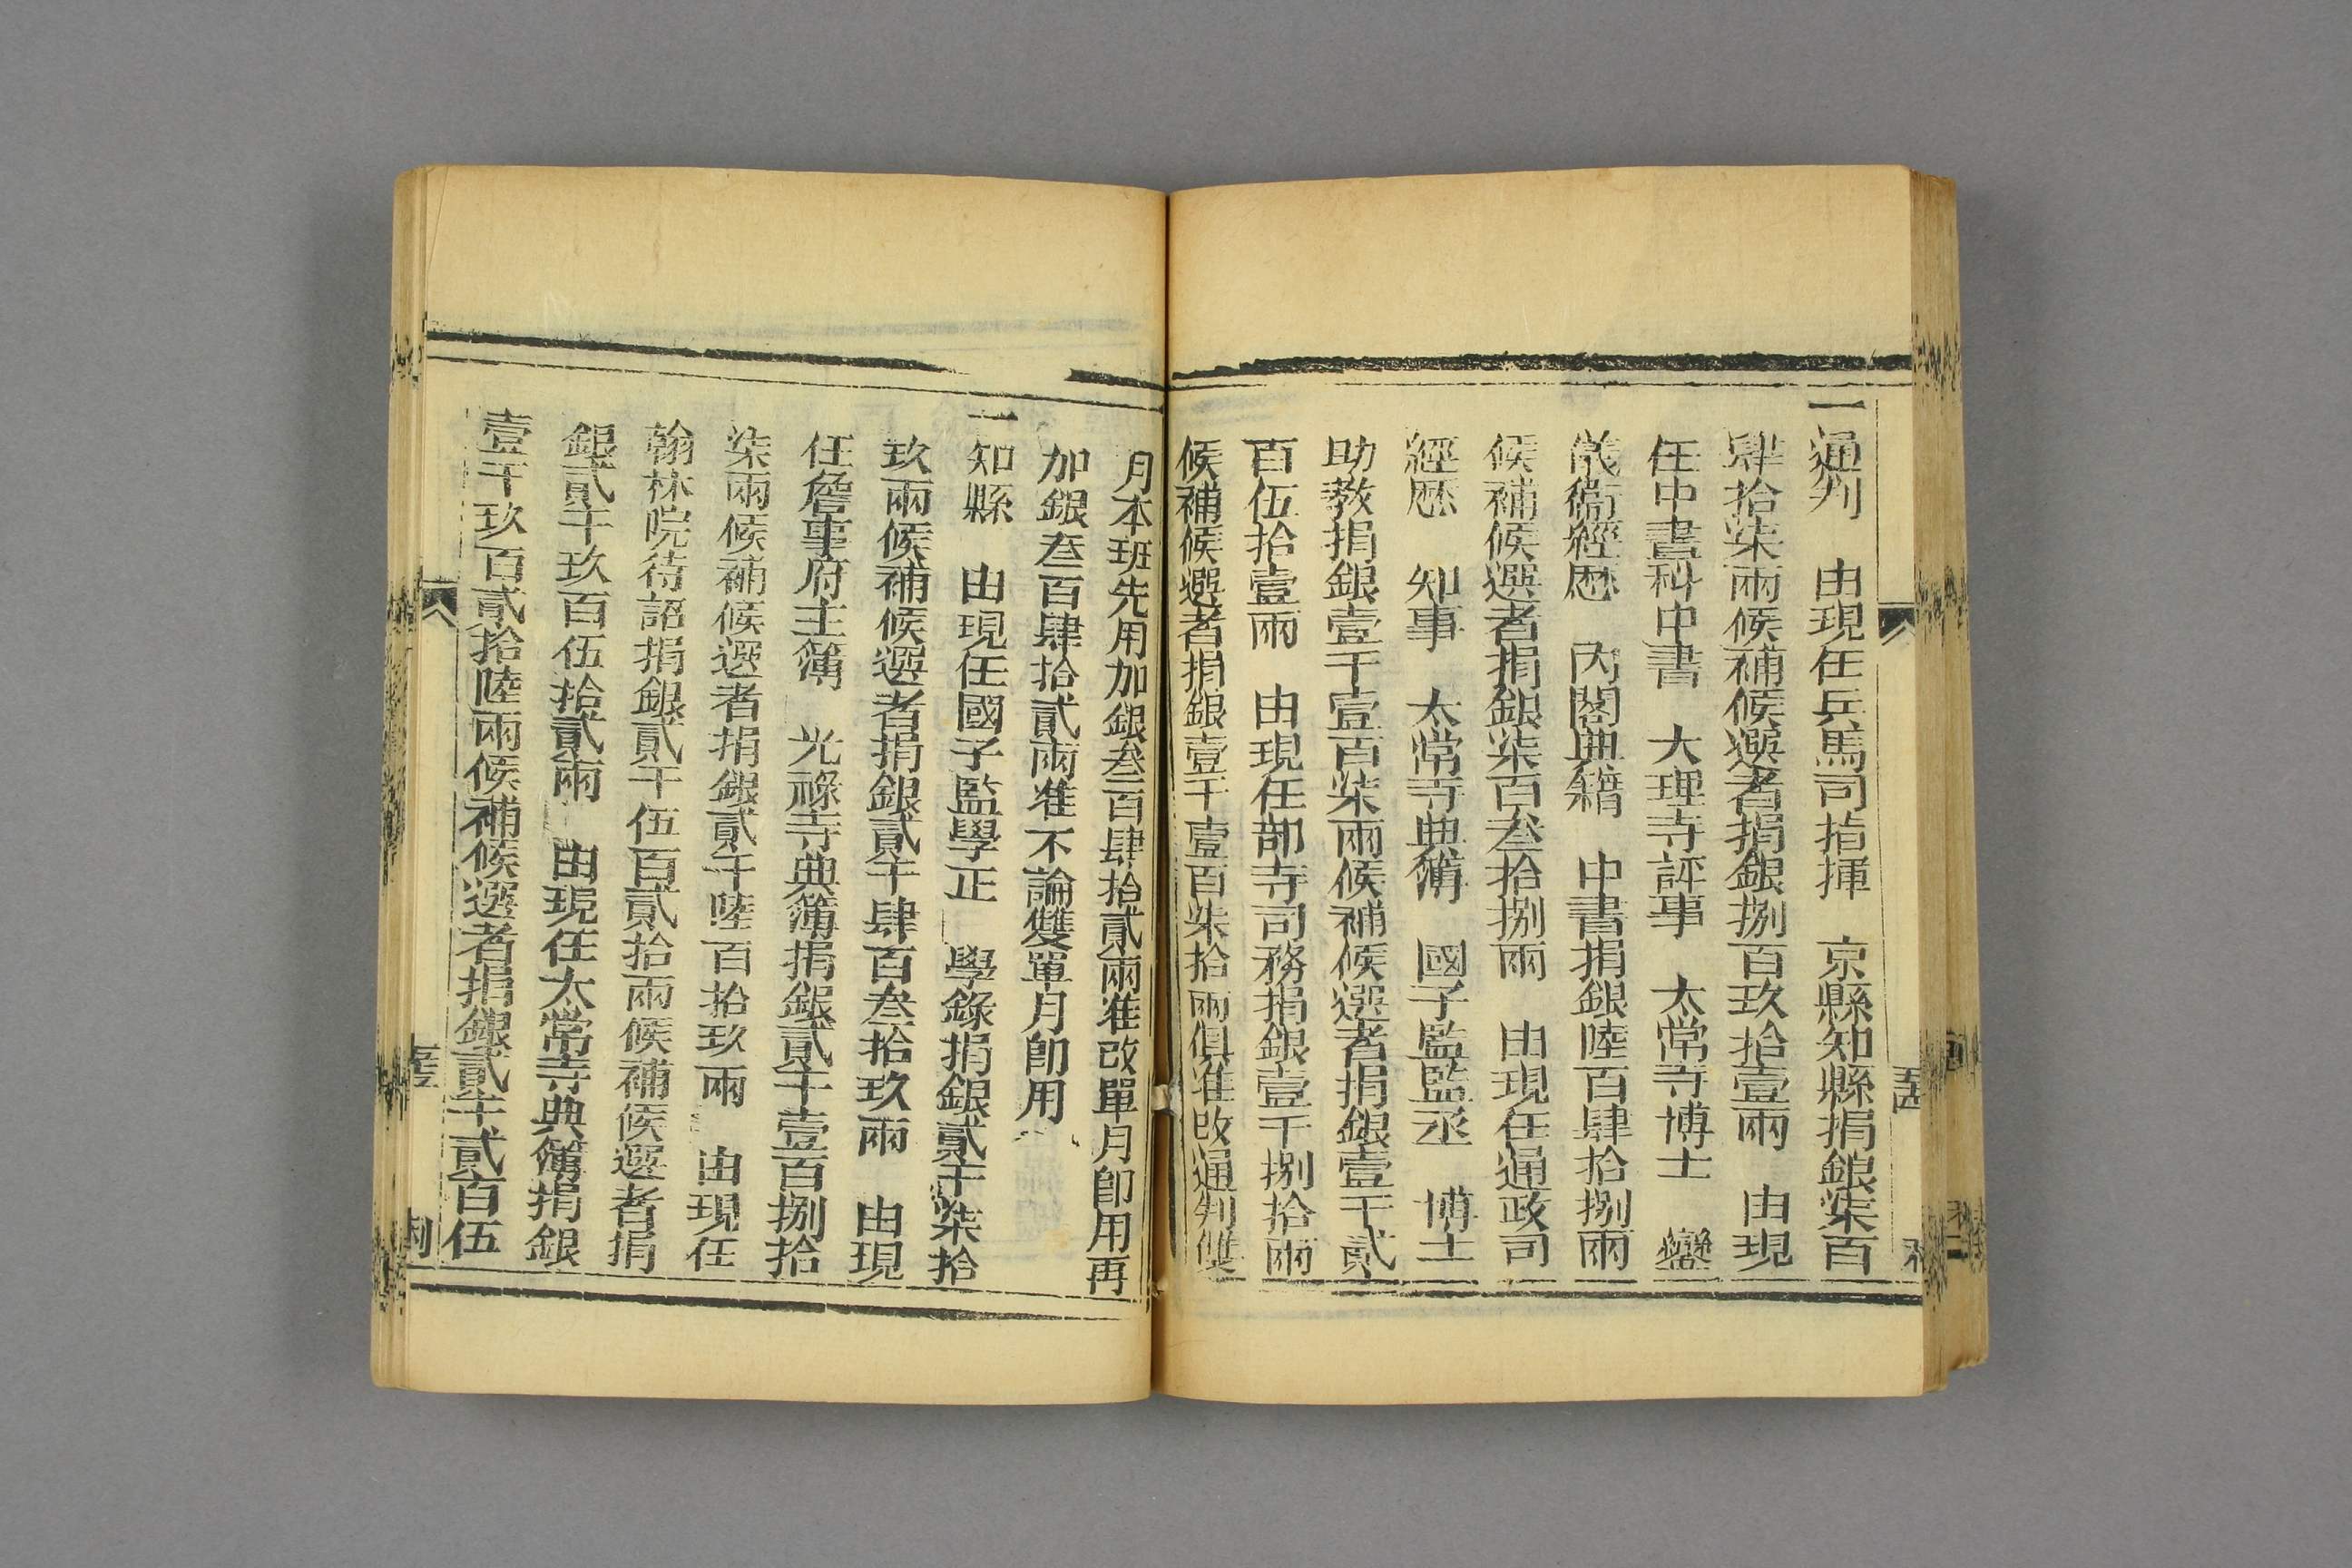 一通判　由現任兵馬司指揮　京縣知縣捐銀柒百
肆拾柒兩候補候選者捐銀捌百玖拾壹兩　由現
任中書科中書　大理寺評事　太常寺博士　鑾
儀衞經歷　內閣典籍　中書捐銀陸百肆拾捌兩
候補候選者捐銀柒百叁拾捌兩　由現任通政司
經歷　知事　太常寺典簿　國子監監丞　博士
助教捐銀壹千壹百柒兩候補候選者捐銀壹千貳
百伍拾壹兩　由現任部寺司務捐銀壹千捌拾兩
候補候選者捐銀壹千壹百柒拾兩俱准改通判雙
月本班先用加銀叁百肆拾貳兩准改單月卽用再
加銀叁百肆拾貳兩准不論雙單月卽用
一知縣　由現任國子監學正　學錄捐銀貳千柒拾
玖兩候補候選者捐銀貳千肆百叁拾玖兩　由現
任詹事府主簿　光祿寺典簿捐銀貳千壹百捌拾
柒兩候補候選者捐銀貳千陸百拾玖兩　由現任
翰林院待詔捐銀貳千伍百貳拾兩候補候選者捐
銀貳千玖百伍拾貳兩　由現任太常寺典簿捐銀
壹千玖百貳拾陸兩候補候選者捐銀貳千貳百伍